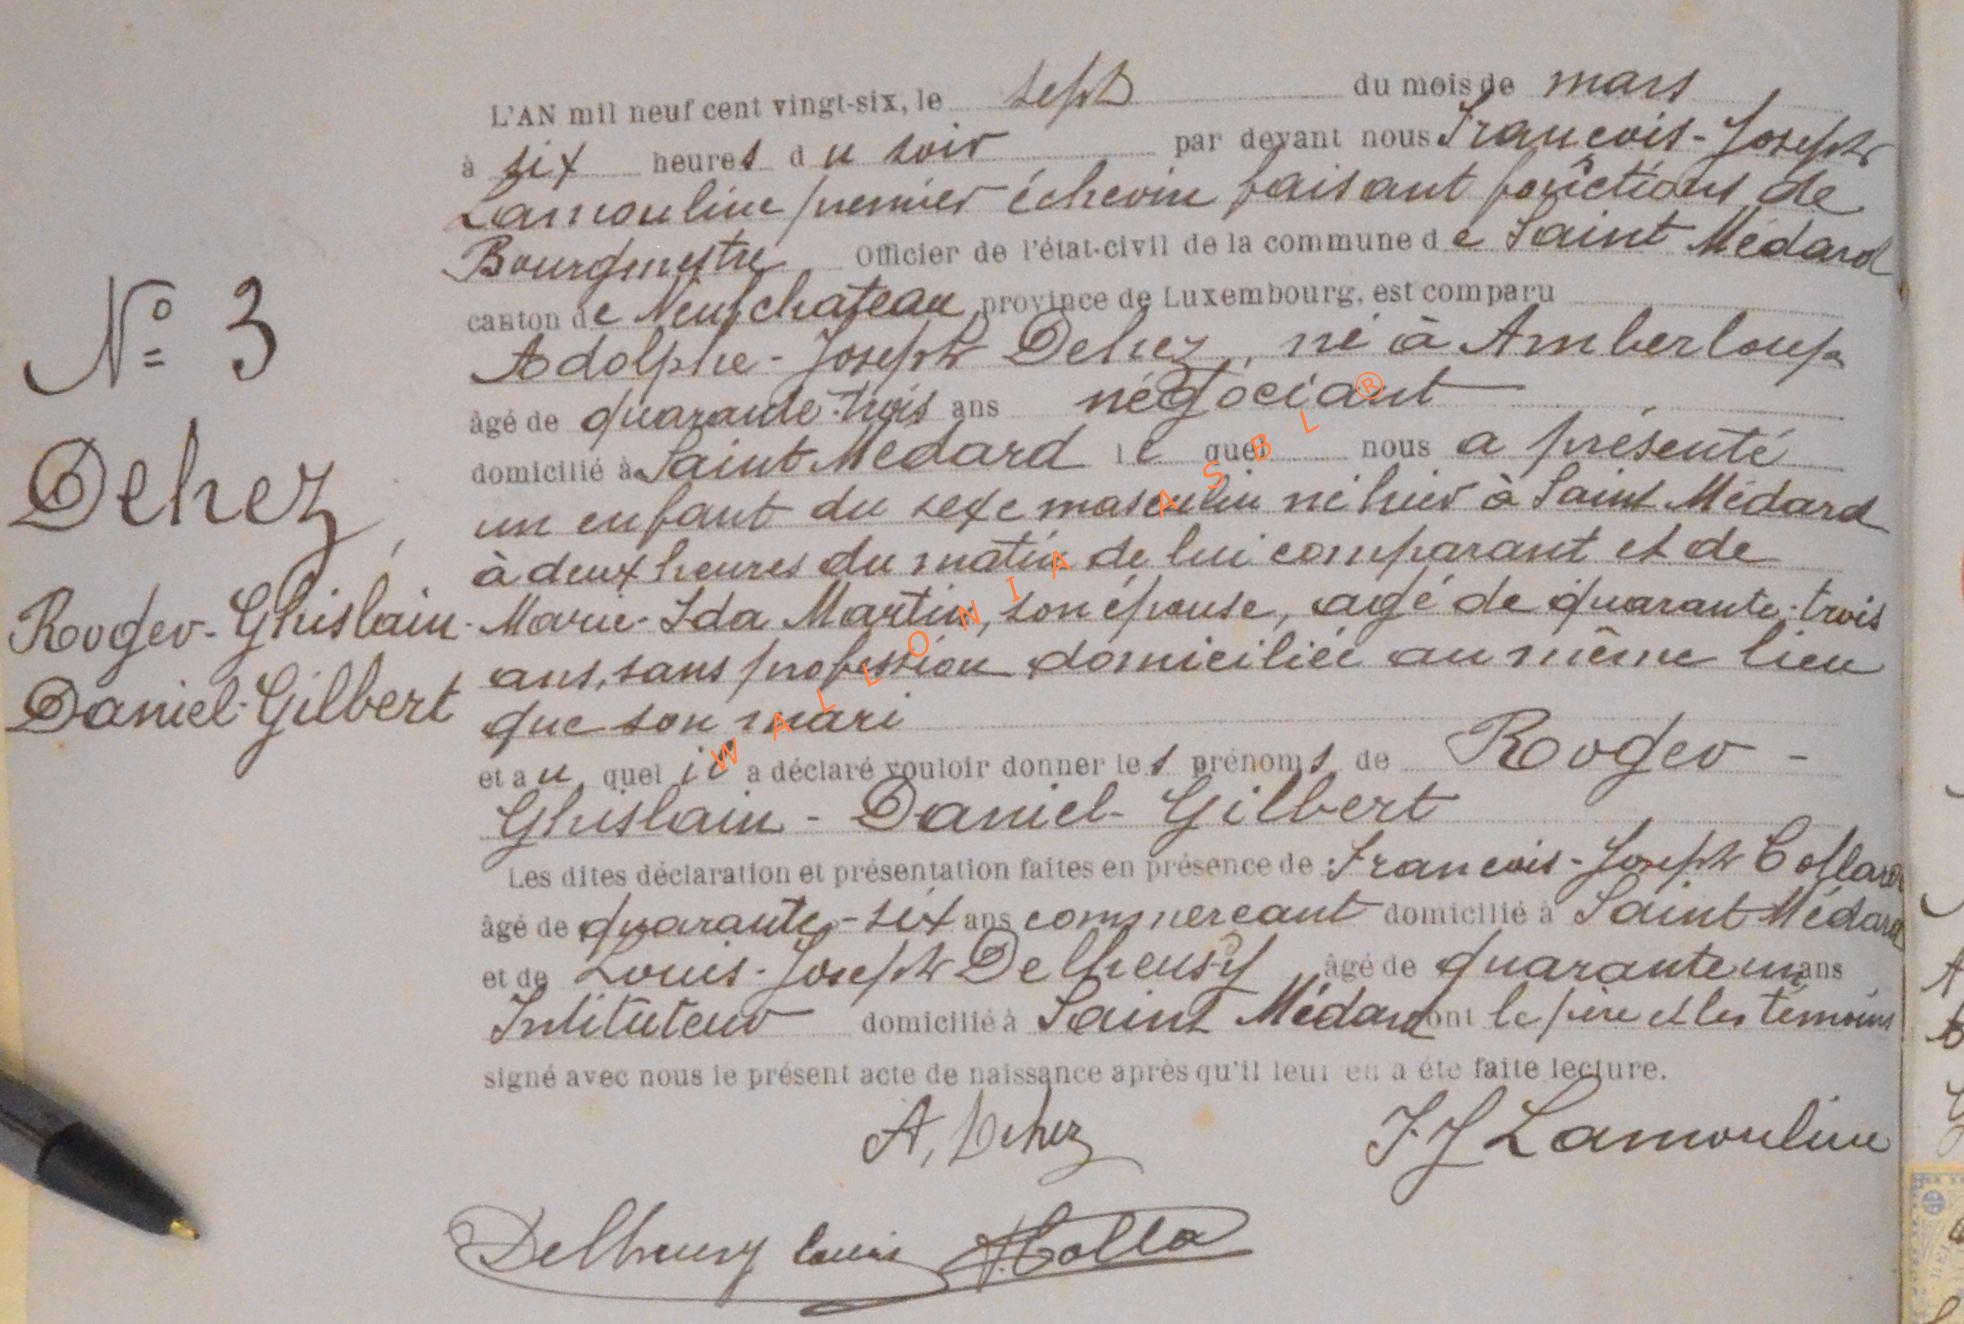 L'AN mil neuf cent vingt-six, le sept du mois de mars
à six heures du soir par devant nous François-Joseph
Lamouline premier échevin faisant fonctions de
Bourgmestre Officier de l'état-civil de la commune de Saint Médard
canton de Neufchateau province de Luxembourg, est comparu
Adolphe-Joseph Dehez, né à Amberloup
âgé de quarante-trois ans négociant
domicilié à Saint Médard lequel nous a présenté
un enfant du sexe masculin né hier à Saint Médard
à deux heures du matin de lui comparant et de
Marie-Ida Martin, son épouse, agé de quarante-trois
ans, sans profession domiciliée au même lieu
que son mari
et auquel il a déclaré vouloir donner les prénoms de Roger-
Ghislain-Daniel-Gilbert
Les dites déclaration et présentation faites en présence de: Francois-Joseph Collard
âgé de quarante-six ans commercant domicilié à Saint Médard
et de Louis-Joseph Delheusy âgé de quarante un ans
Intituteur domicilié à Saint Médard ont le père et les témoins
signé avec nous le présent acte de naissance après qu'il leur en a été faite lecture.
A, Dehez F. J Lamouline
Delheusy louis F. Colla
N° 3
Dehez,
Roger-Ghislain-
Daniel-Gilbert
WALLONIA ASBL ®